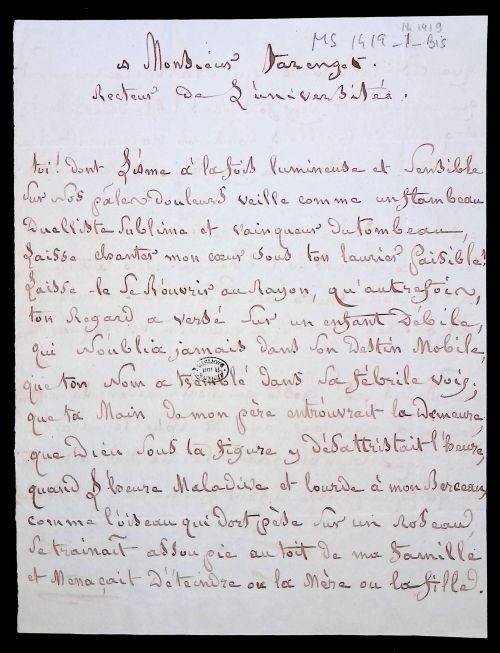 No 1919
MS 1919-1-Bis
à Monsieur Tarenget.
Recteur de L'université.
toi! dont L'âme à la fois lumineuse et Sensible
Sur nos pâles douleurs veille comme un flambeau
Dualliste Sublime et vainqueur du tombeau,
Laisse chanter mon cœur sous ton laurier paisible!
Laisse-le Se Rouvrir au Rayon, qu'autrefois,
ton Regard a versé Sur un enfant Débile,
qui N'oublia jamais dans Son Destin Mobile,
que ton Nom a tremblé dans Sa fébrile voix;
que ta Main de mon père entr'ouvrait la Demeure,
que Dieu Sous ta figure y désattristait l'heure,
quand L'heure Maladive et lourde à mon Berceau,
comme l'oiseau qui dort pèse Sur un Roseau,
Se trainait assoupie au toit de ma famille
et Menaçait D'éteindre ou la Mère ou la fille.